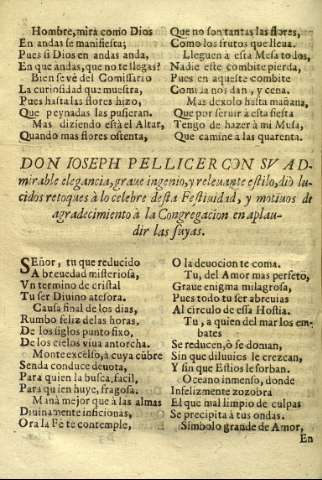 Hombre, mira como Dios
En andas se manifiesta;
Pues si Dios en andas anda,
En que andas, que no te llegas?
Bien se vé del Comissario
La curiosidad que muestra,
Pues hasta las flores hizo,
Que peynadas las pusieran.
Mas diziendo està el Altar,
Quando mas flores ostenta,
Que no son tantas las flores,
Como los frutos que lleua.
Lleguen à esta Mesa todos,
Nadie este combite pierda,
Pues en aqueste combite
Comida nos dan, y cena.
Mas dexolo hasta mañana,
Que por seruir à esta fiesta
Tengo de hazer à mi Musa,
Que camine a las quarenta.
DON IOSEPH PELLICER CON SV AD-
mirable elegancia, graue ingenio, y releuante estilo, diò lu-
cidos retoques à lo celebre desta Festiuidad, y motiuos de
agradecimiento à la Congregacion en aplau-
dir las suyas.
SEñor, tu que reducido
A breuedad misteriosa,
Vn termino de cristal
Tu ser Diuino atesora.
Causa final de los dias,
Rumbo feliz de las horas.
De los siglos punto fixo,
De los cielos viua antorcha.
Monte excelso, à cuya cúbre
Senda conduce deuota,
Para quien la busca, facil,
Para quien huye, fragosa.
Manà mejor que à las almas
Diuinamente inficionas,
Ora la Fe te contemple,
O la deuocion te coma.
Tu, del Amor mas perfeto,
Graue enigma milagrosa,
Pues todo tu ser abreuias
Al circulo de essa Hostia.
Tu, a quien del mar los em-
bates
Se reducen, ò se doman,
Sin que diluuios le crezcan,
Y sin que Estios le sorban.
Oceano inmenso, donde
Infelizmente zozobra
El que mal limpio de culpas
Se precipita à tus ondas.
Simbolo grande de Amor,
En